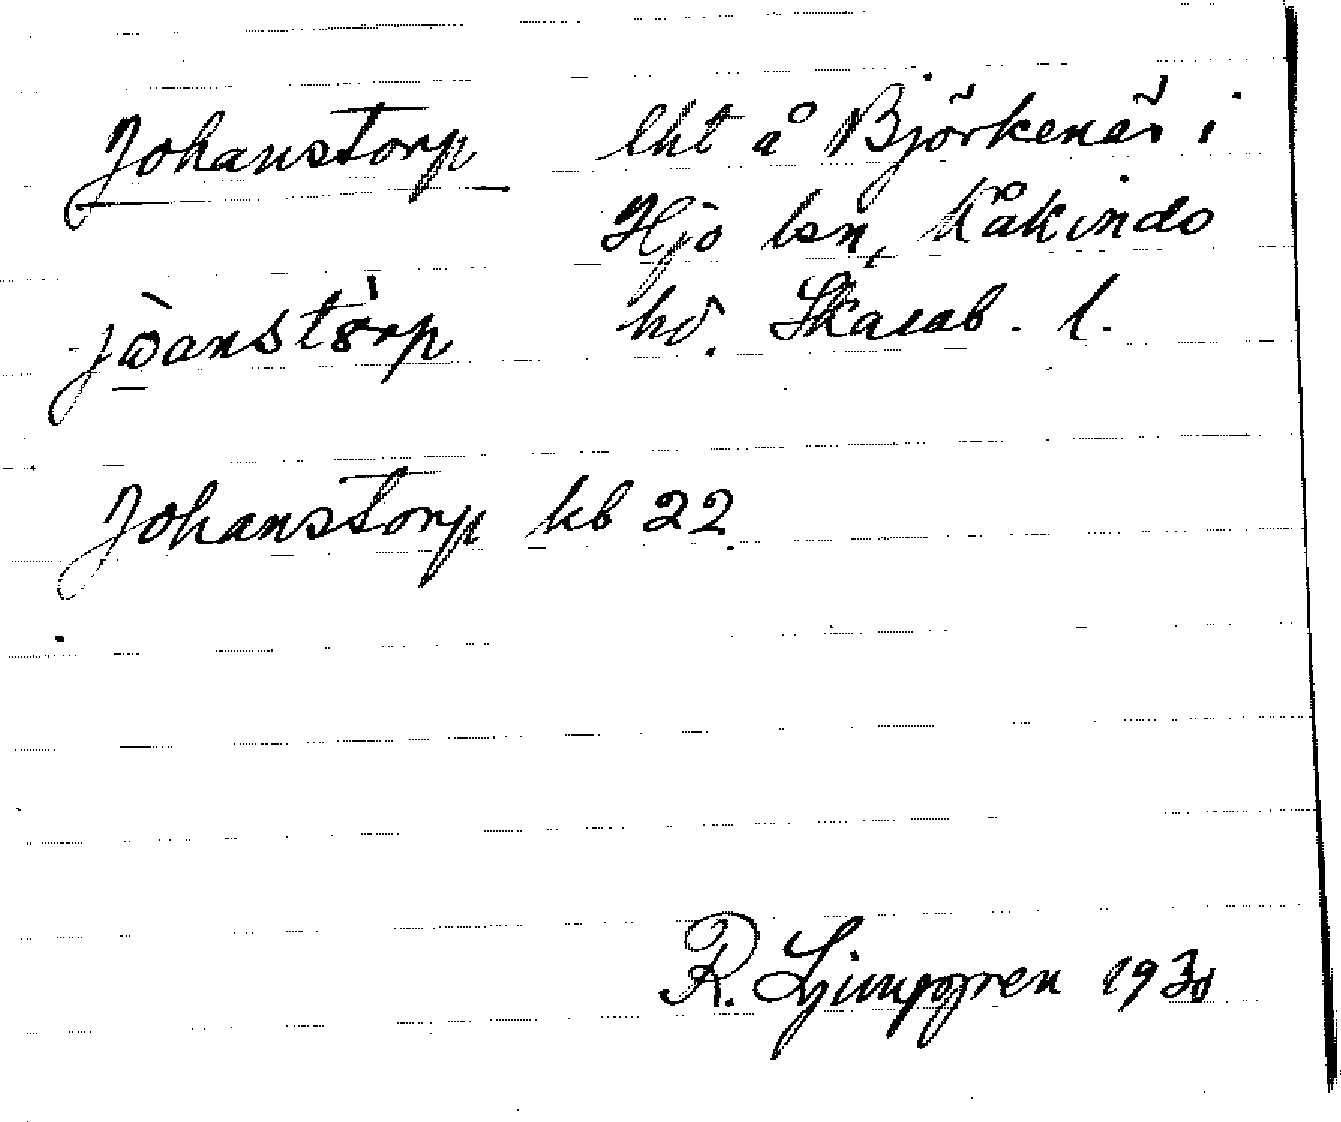 Johanstorp lht å Björkenäs i
Hjo lsn, Kåkinds
jòanstòrp hd. Skarab. l.
Johanstorp kb 22.
R. Ljunggren 1930